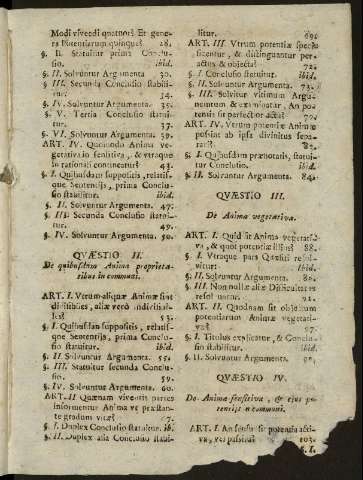 Modi vivendi quatuor? Et gene-
ra Potentiarum quinque? 28.
§. II. Statuitur prima Conclu-
sio. ibid.
§. II. Solvuntur Argumenta 30.
§. III. Secunda Conclusio stabili-
tur. 34.
§. IV. Solvuntur Argumenta. 35.
§. V. Tertia Conclusio statui-
tur. 37.
§. VI. Solvuntur Argumenta. 39.
ART. IV. Quomodo Anima ve-
getativa in sensitiva, & utraque
in rationali contineatur? 43.
§. I. Quibusdam suppositis, relatis-
que Sententijs, prima Conclu-
sio statuitur. ibid.
§. II. Solvuntur Argumenta. 47.
§. III. Secunda Conclusio statui-
tur. 49.
§. IV. Solvuntur Argumenta. 50.
QVÆSTIO II.
De quibusdam Animæ proprieta-
tibus in communi.
ART. I. Utrum aliquæ Animæ sint
divisibiles, aliæ verò indivisibi-
les? 53.
§. I. Quibusdam suppositis, relatis-
que Sententijs, prima Conclu-
sio statuitur. ibid.
§. II. Solvuntur Argumenta. 55.
§. III. Statuitur secunda Conclu-
sio. 59.
§. IV. Solvuntur Argumenta. 60.
ART. II Quænam viventis partes
informentur Anima ve præstan-
te gradum vitæ? 67.
§. I. Duplex Conclusio statuitur. ib.
§. II. Duplex alia Conclusio statui-
litur. 69.
ART. III. Utrum potentiæ speci-
ficentur, & distinguantur per
actus & objecta? 72.
§. I. Conclusio statuitur. ibid.
§. II. Solvuntur Argumenta. 73.
§. III. Solvitur vltimum Argu-
mentum & examinatur, An po-
tentia sit perfectior actu? 79.
ART. IV. Vtrum potentiæ Animæ
possint ab ipsa divinitus sepa-
rari? 82.
§. I. Quibusdam prænotatis, statui-
tur Conclusio. ibid.
§. II. Solvuntur Argumenta. 84.
QVÆSTIO III.
De Anima vegetativa.
ART. I. Quid sit Anima vegetati-
va, & quot potentiæ illius? 88.
§. I. Vtraque pars Quæsiti resol-
vitur. ibid.
§. II. Solvuntur Argumenta. 89.
§. III. Non nullæ aliæ Difficultates
resolvuntur. 92.
ART. II. Quodnam sit objectum
potentiarum Animæ vegetati-
væ? 97.
§. I. Titulus explicatur, & Conclu-
sio stabilitur. ibid.
§. II. Solvuntur Argumenta.
QVÆSTIO IV.
De Anima sensitiva, & ejus po-
tentijs in communi.
ART. I. An sensus sit potentia acti-
va, vel passiva? 103.
§. I.